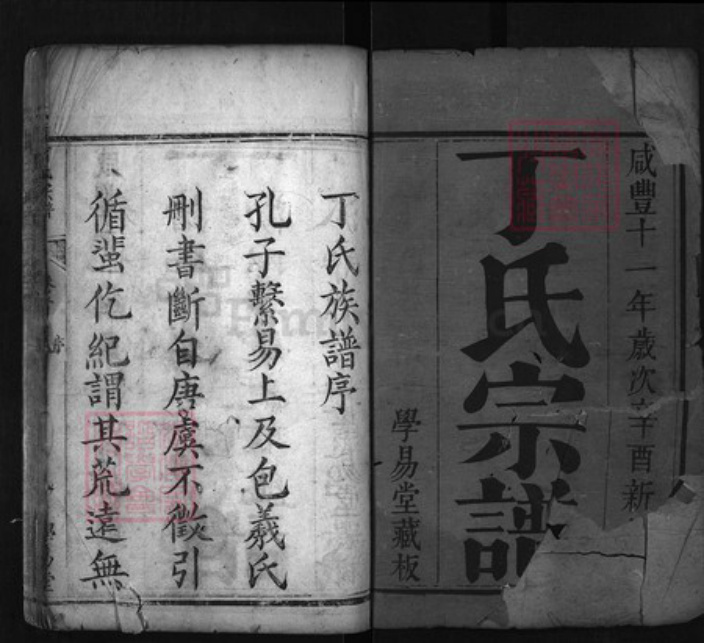 咸豐十一年歲次辛酉新
丁氏宗譜
學易堂藏板
丁氏族譜序
孔子繫易上及包羲氏
刪書斷自唐虞不徵引
循蜚仡紀謂其荒遠無